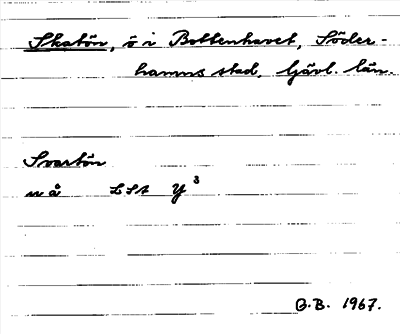 Skatön, ö i Bottenhavet, Söder-
hamns stad, Gävl. län.
Svartön
n å LSA Y 3
G.B. 1967.